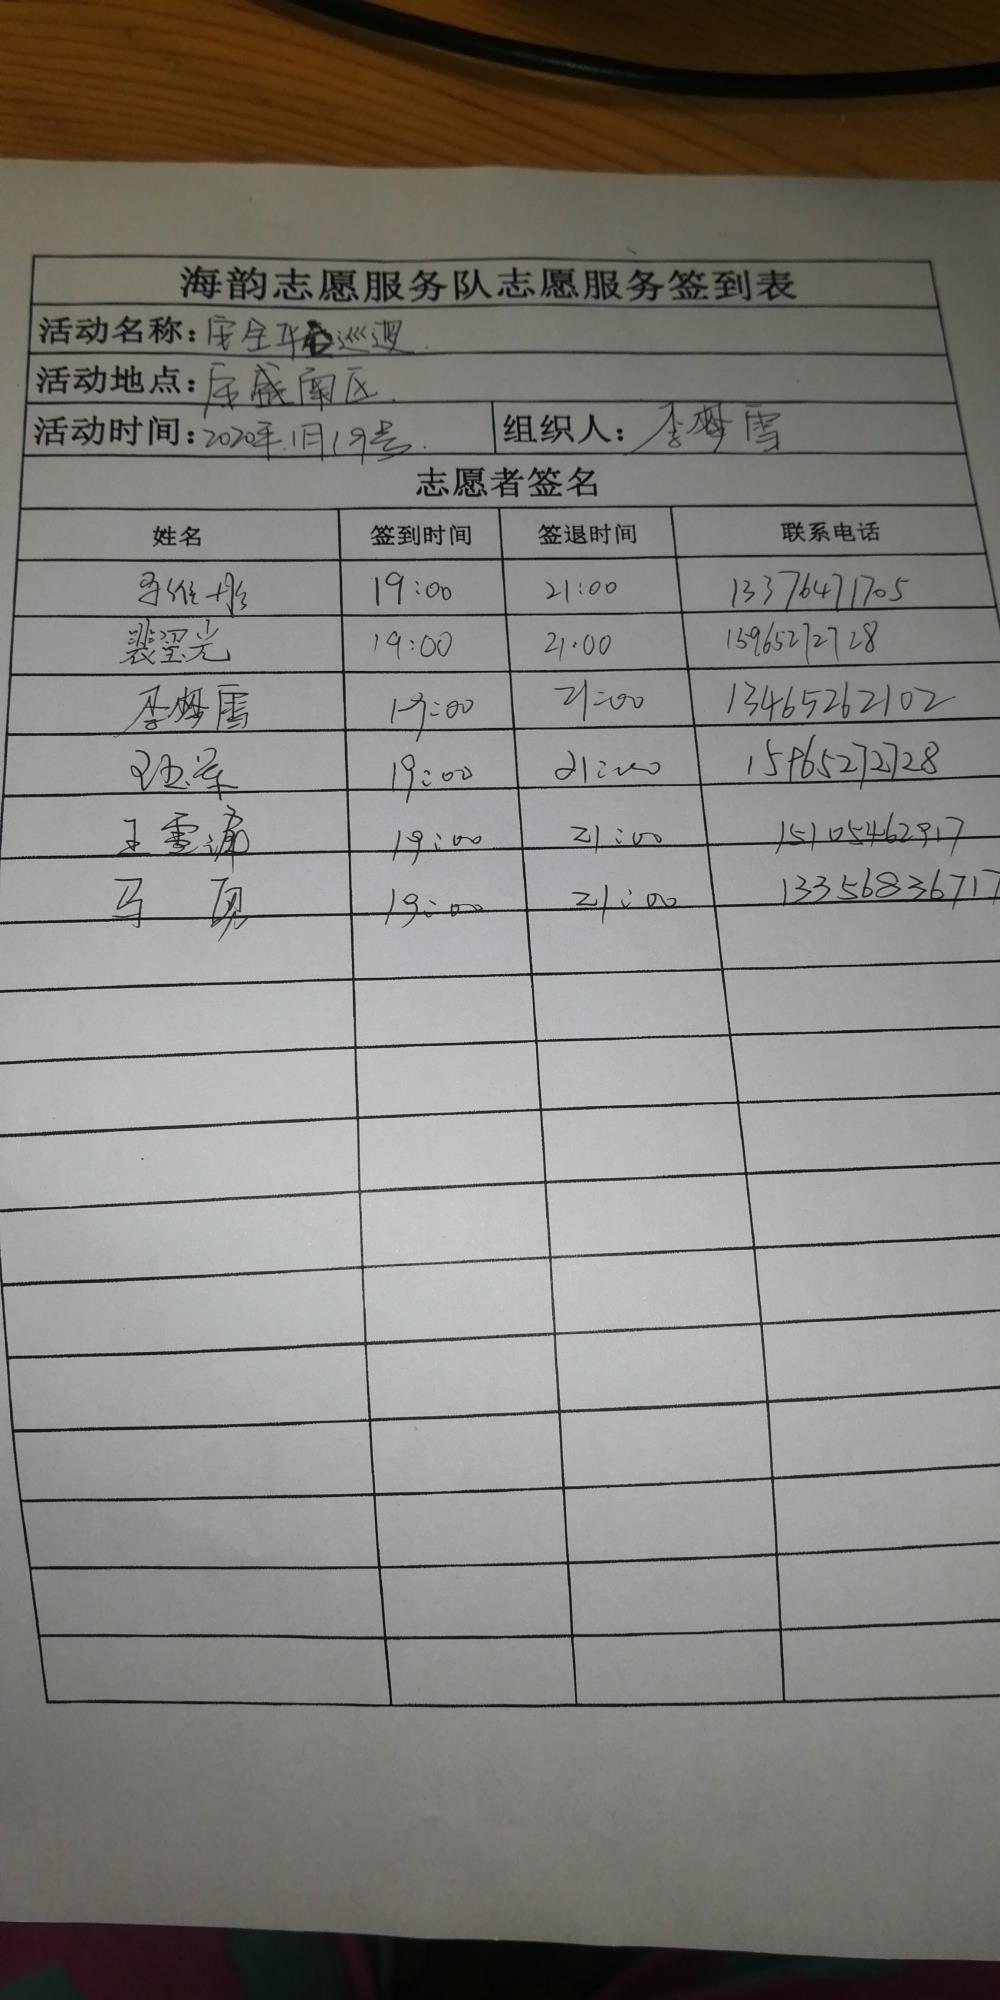 海韵志愿服务队志愿服务签到表
活动名称:安全平巡逻.
活动地点:东盛南区.
活动时间:2020年.1月19号. 组织人:李梅雪
志愿者签名
姓名 签到时间 签退时间 联系电话
19:00 21:00 13376471705
裴翠光 19:00 21:00 15965272728
李梅雪 19:00 21:00 13465262102
19:00 21:00 15965272728
王雪 19:00 21:00 15105462917
马 19:00 21:00 13356836717